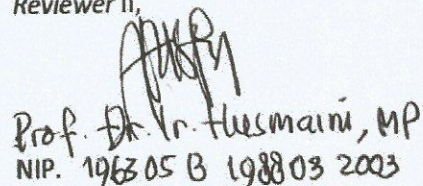 Reviewer II,
Prof. Dr. Ir. Husmaini, MP
NIP. 196305 13 198803 2003